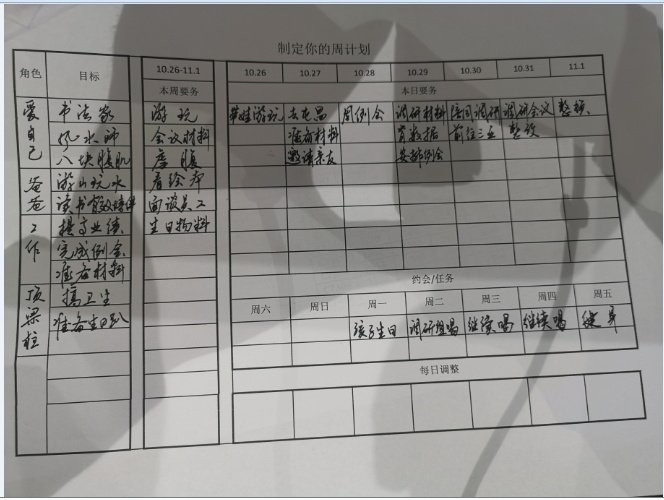 制定你的周计划
角色 目标 10.26-11.1 10.26 10.27 10.28 10.29 10.30 10.31 11.1
本周要务 本日要务
爱自己 书法家 游玩 带娃游玩 周例会 调研材料 陪同调研 调研会议
风水师 会议材料 准备材料 前往三亚
八块腹肌 邀请亲友
爸爸 游山玩水 看绘本
读书 面谈员工
工作 提高业绩 生日物料
完成例会
准备材料
约会/任务
顶梁柱 搞卫生 周六 周日 周一 周二 周三 周四 周五
准备生日趴 孩子生日 继续喝 继续喝 健身
每日调整